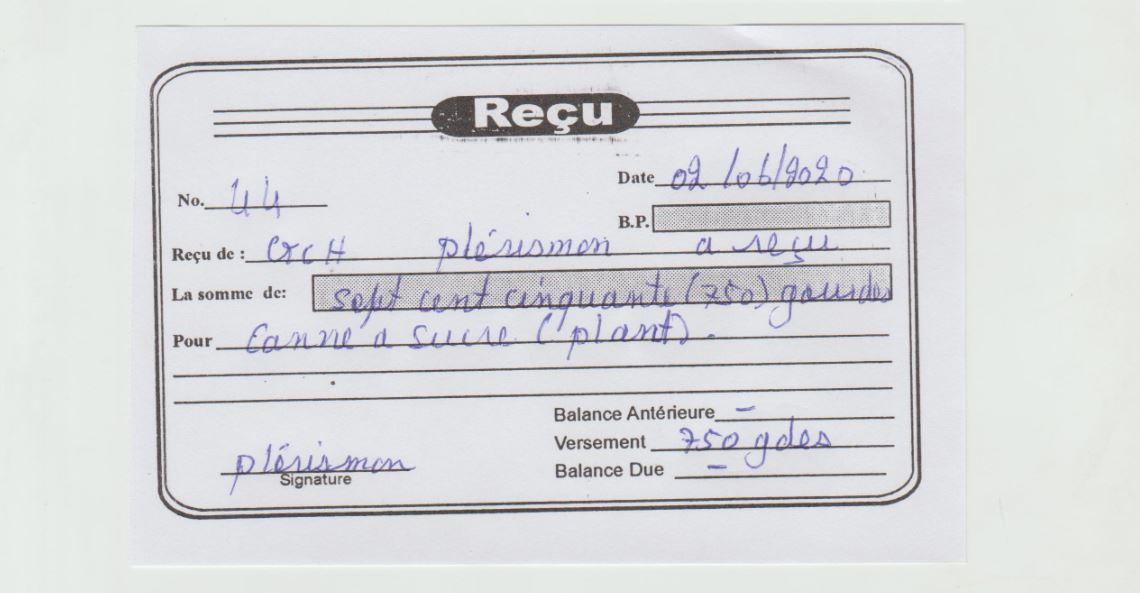 Reçu
Date 02/06/2020
No. 44
B.P.
Reçu de : CTCH plérismon a reçu
La somme de: sept cent cinquante (750) gourdes
Pour Canne a sucre (plant).
Balance Antérieure -
Versement 750 gdes
Balance Due -
plérismon
Signature